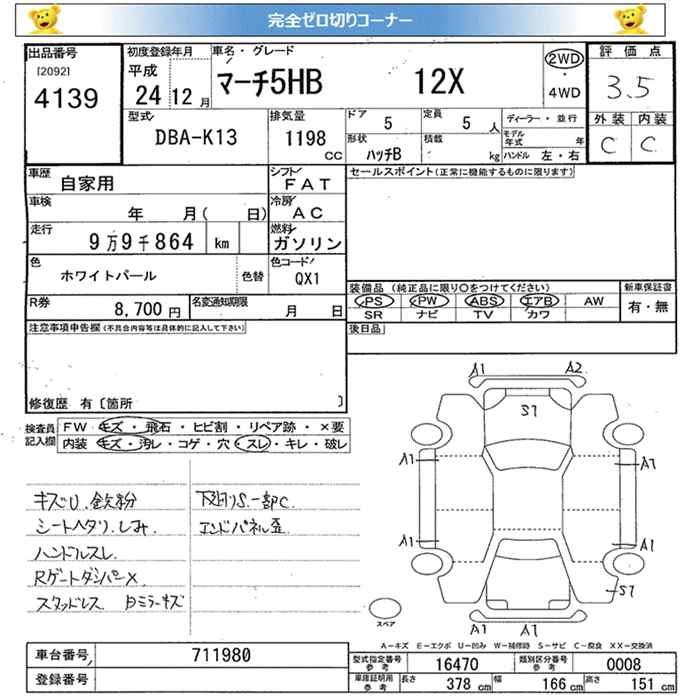 完全ゼロ切りコーナー
出品番号
[2092]
4139
初度登録年月
平成
24 12 月
車名・グレード
マーチ5HB 12X
2WD
・
4WD
評価点
3.5
外装 内装
C C
型式
DBA-K13
排気量
1198
CC
ドア
5
定員
5 人
形状
ハッチB
積載
kg
ディーラー・並行
モデル年式 年
ハンドル 左・右
車歴
自家用
シフト
FAT
車検
年 月( 日)
冷房
AC
走行
9万9千864 km
燃料
ガソリン
色
ホワイトパール
色替
色コード
QX1
R券
8,700 円
名変通知期限
月 日
セールスポイント(正常に機能するものに限ります)
装備品(純正品に限り○をつけてください)
PS PW ABS エアB AW
SR ナビ TV カワ
新車保証書
有・無
後日品
注意事項申告欄(不具合内容等は具体的に記入して下さい)
修復歴 有〔箇所 〕
検査員記入欄
FW キズ・飛石・ヒビ割・リペア跡・×要
内装 キズ・汚レ・コゲ・穴・スレ・キレ・破レ
キズU.鉄粉
シートヘタリ.しみ.
ハンドルスレ.
Rゲートダンパー×
スタッドレス 日ミラーキズ
下廻りS.一部C.
エンドパネル歪
A1 A2
S1
A1 A1
A1 A1
S1
A1 A1
スペア
A-キズ E-エクボ U-凹み W-補修跡 S-サビ C-腐食 XX-交換済
車台番号
711980
登録番号
型式指定番号
参考
16470
類別区分番号
参考
0008
車庫証明用
参考
長さ 378 cm 幅 166 cm 高さ 151 cm